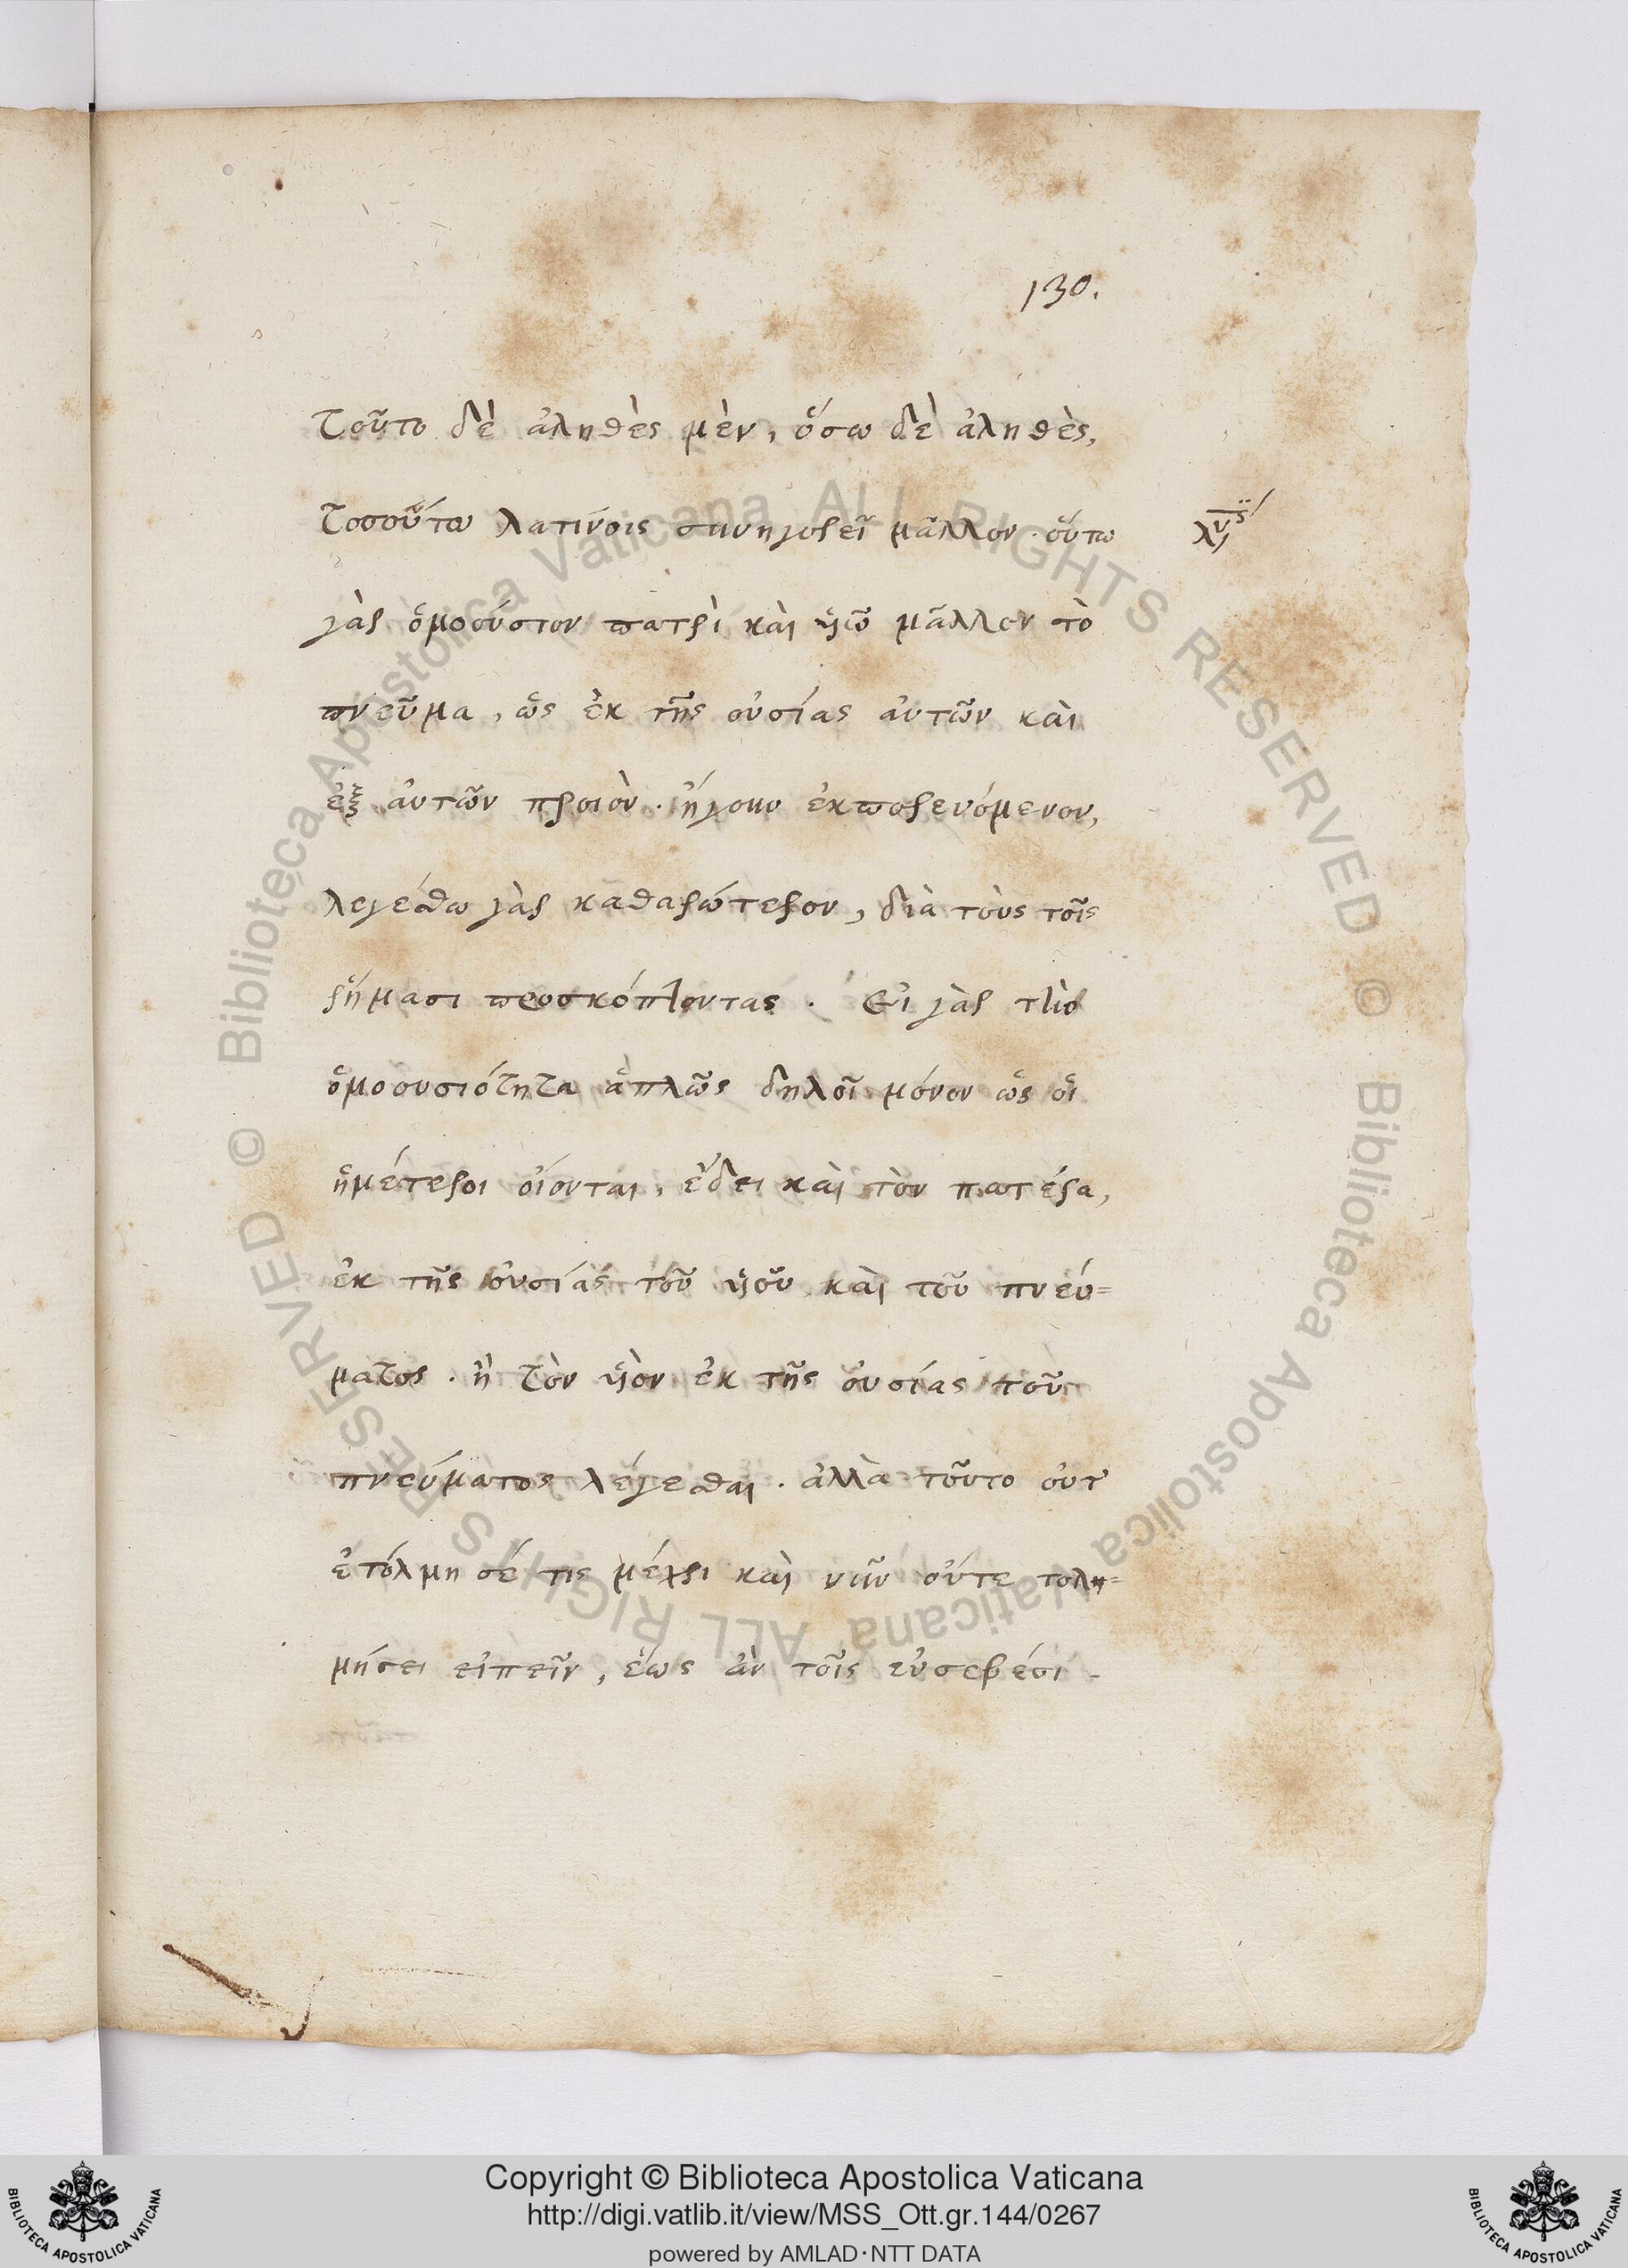 130.
Τοῦτο δὲ ἀληθὲς μὲν, ὅσω δὲ ἀληθὲς,
τοσοῦτω λατίνοις συνηγορεῖ μᾶλλον. οὕτω
γὰρ ὁμοούσιον πατρὶ καὶ ὑιῶ μᾶλλον τὸ
πνεῦμα, ὡς ἐκ τῆς οὐσίας ἀυτῶν καὶ
ἐξ ἀυτῶν προιὸν. ἤγουν ἐκπορευόμενον,
λεγέσθω γὰρ καθαρώτερον, διὰ τοὺς τοῖς
ῥήμασι προσκόπτοντας. Εἰ γὰρ τὴν
ὁμοουσιότητα ἁπλῶς δηλοῖ μόνον ὡς οἱ
ἡμέτεροι οἴονται, ἔδει καὶ τὸν πατέρα,
ἐκ τῆς οὐσίας τοῦ ὑιοῦ καὶ τοῦ πνεύ=
ματος. ἢ τὸν ὑιὸν ἐκ τῆς οὐσίας τοῦ
πνεύματος λέγεσθαι. ἀλλὰ τοῦτο οὐτ'
ἐτόλμησέ τις μέχρι καὶ νῦν οὔτε τολ=
μήσει εἰπεῖν, ἕως ἂν τοῖς εὐσεβέσι
© Biblioteca Apostolica Vaticana ALL RIGHTS RESERVED © Biblioteca Apostolica Vaticana ALL RIGHTS RESERVED
BIBLIOTECA APOSTOLICA VATICANA
Copyright © Biblioteca Apostolica Vaticana
http://digi.vatlib.it/view/MSS_Ott.gr.144/0267
powered by AMLAD·NTT DATA
BIBLIOTECA APOSTOLICA VATICANA